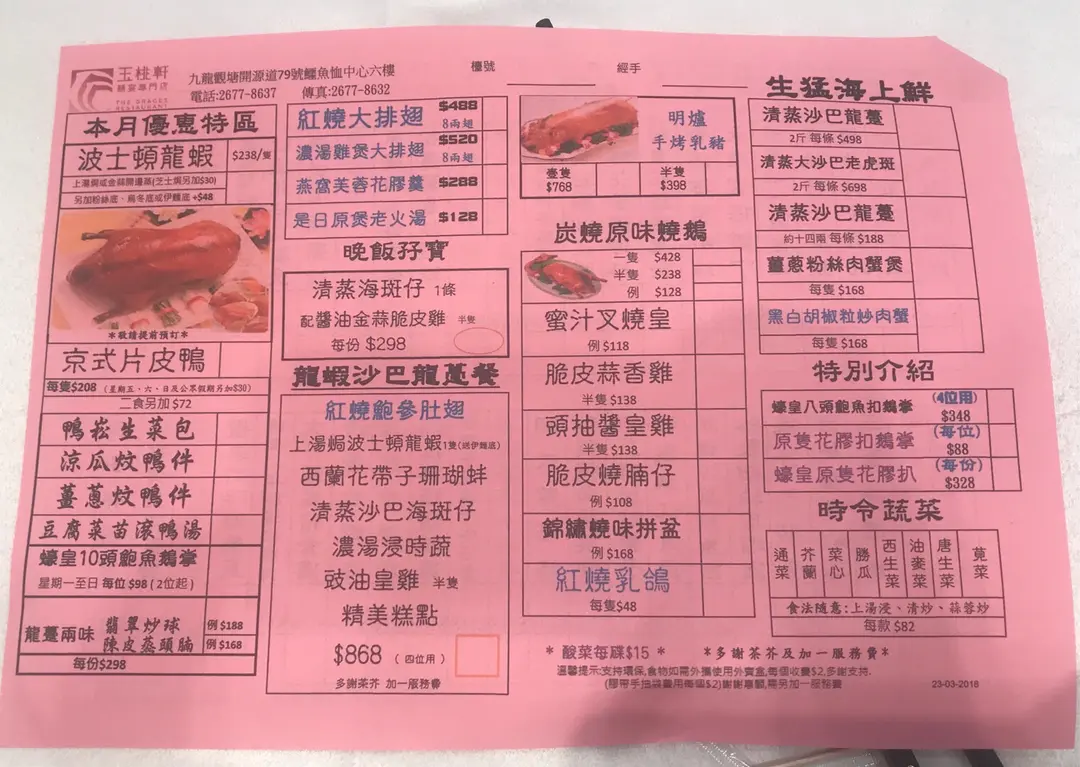 玉桃軒
精宴專門店
THE GRACES
RESTAURANT
九龍觀塘開源道79號鱷魚恤中心六樓
電話:2677-8637 傳真:2677-8632
檯號
經手
本月優惠特區
波士頓龍蝦 $238/隻
上湯焗或金蒜開邊蒸(芝士焗另加$30)
另加粉絲底、烏冬底或伊麵底 +$48
*敬請提前預訂*
京式片皮鴨
每隻$208 (星期五、六、日及公眾假期另加$30)
二食另加 $72
鴨崧生菜包
涼瓜炆鴨件
薑蔥炆鴨件
豆腐菜苗滚鴨湯
蠔皇10頭鮑魚鵝掌
星期一至日 每位 $98 ( 2位起 )
龍躉兩味
翡翠炒球 例 $188
陳皮蒸頭腩 例 $168
每份$298
紅燒大排翅 $488
8兩翅
濃湯雞煲大排翅 $520
8兩翅
燕窩芙蓉花膠羹 $288
是日原煲老火湯 $128
晚飯孖寶
清蒸海斑仔 1條
配醬油金蒜脆皮雞 半隻
每份 $298
龍蝦沙巴龍躉餐
紅燒鮑參肚翅
上湯焗波士頓龍蝦1隻(送伊麵底)
西蘭花帶子珊瑚蚌
清蒸沙巴海斑仔
濃湯浸時蔬
豉油皇雞 半隻
精美糕點
$868 ( 四位用 )
多謝茶芥 加一服務費
明爐
手烤乳豬
壹隻
$768
半隻
$398
炭燒原味燒鵝
一隻 $428
半隻 $238
例 $128
蜜汁叉燒皇
例 $118
脆皮蒜香雞
半隻 $138
頭抽醬皇雞
半隻 $138
脆皮燒腩仔
例 $108
錦繡燒味拼盆
例 $168
紅燒乳鴿
每隻$48
生猛海上鮮
清蒸沙巴龍躉
2斤 每條 $498
清蒸大沙巴老虎斑
2斤 每條 $698
清蒸沙巴龍躉
約十四兩 每條 $188
薑蔥粉絲肉蟹煲
每隻 $168
黑白胡椒粒炒肉蟹
每隻 $168
特別介紹
蠔皇八頭鮑魚扣鵝掌 (4位用)
$348
原隻花膠扣鵝掌 (每位)
$88
蠔皇原隻花膠扒 (每份)
$328
時令蔬菜
通菜 芥蘭 菜心 勝瓜 西生菜 油麥菜 唐生菜 莧菜
食法隨意:上湯浸、清炒、蒜蓉炒
每款 $82
* 酸菜每碟$15 * *多謝茶芥及加一服務費*
溫馨提示:支持環保,食物如需外攜使用外賣盒,每個收費$2,多謝支持.
(膠帶手抽袋費用每個$2)謝謝惠顧,需另加一服務費
23-03-2018